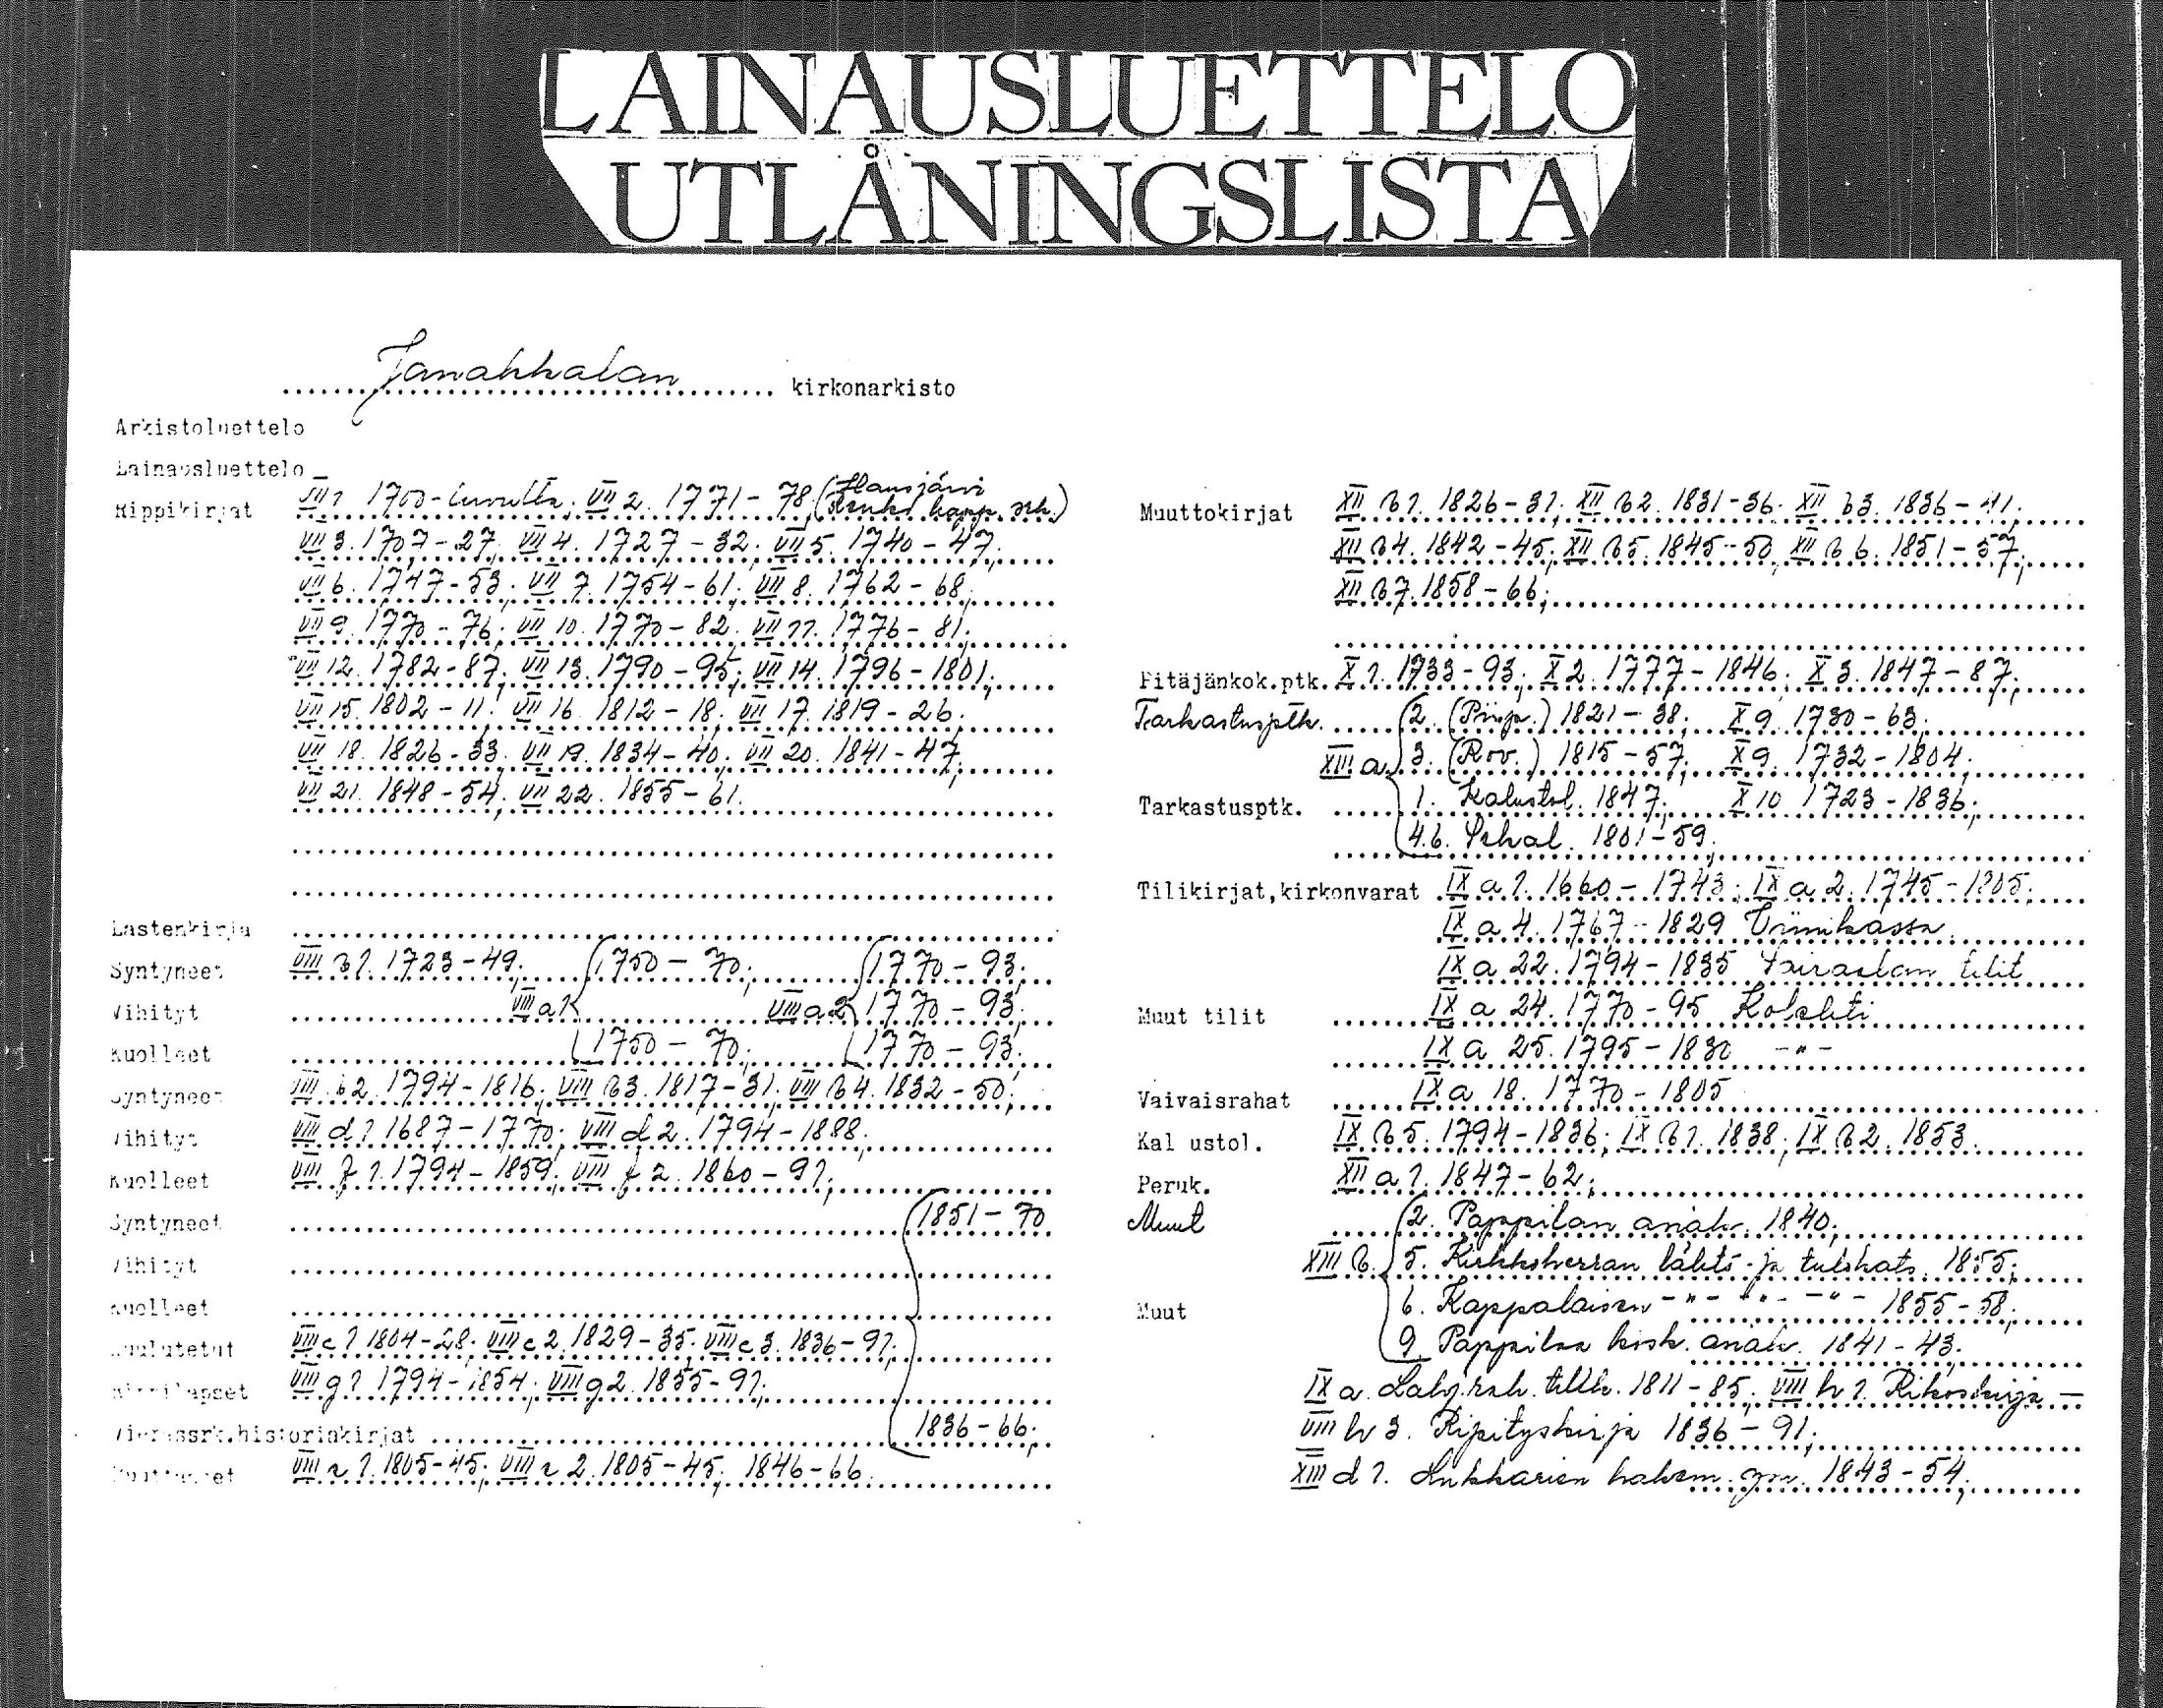 LAINAUSLUETTELO
UTLÅNINGSLISTA
Janakkalan kirkonarkisto
Arkistoluettelo
Lainausluettelo
Rippikirjat VII 1. 1700-luvulta; VII 2. 1771-78 (Hausjärvi Renko kapp. srk.)
VII 3. 1707-27; VII 4. 1727-32; VII 5. 1740-47;
VII 6. 1747-53; VII 7. 1754-61; VII 8. 1762-68;
VII 9. 1770-76; VII 10. 1770-82; VII 11. 1776-81;
VII 12. 1782-87; VII 13. 1790-95; VII 14. 1796-1801;
VII 15. 1802-11; VII 16. 1812-18; VII 17. 1819-26;
VII 18. 1826-33; VII 19. 1834-40; VII 20. 1841-47;
VII 21. 1848-54; VII 22. 1855-61.
Lastenkirja
Syntyneet VIII b 1. 1723-49; 1750-70; 1770-93;
Vihityt VIII a 1 VIII a 2 1770-93;
Kuolleet 1750-70; 1770-93;
Syntyneet VIII b 2. 1794-1816; VIII b 3. 1817-31; VIII b 4. 1832-50;
Vihityt VIII d 1 1687-1770; VIII d 2. 1794-1888;
Kuolleet VIII f 1. 1794-1859; VIII f 2. 1860-91;
Syntyneet 1851-70
Vihityt
Kuolleet
Kuulutetut VIII c 1 1804-28; VIII c 2. 1829-35; VIII c 3. 1836-91;
Rippilapset VIII g 1. 1794-1854; VIII g 2. 1855-91;
Vierassrk.historiakirjat 1836-66;
VIII 1. 1805-45; VIII 2. 1805-45; 1846-66.
Muuttokirjat XII b 1. 1826-31; XII b 2. 1831-36; XII b 3. 1836-41;
XII b 4. 1842-45; XII b 5. 1845-50; XII b 6. 1851-57;
XII b 7. 1858-66;
Pitäjänkok.ptk. X 1. 1733-93; X 2. 1777-1846; X 3. 1847-87;
Tarkastusptk. 2. (Piisp.) 1821-38; X 9. 1730-63;
XIII a 3. (Rov.) 1815-57; X 9. 1732-1804;
Tarkastusptk. 1. Kalustol. 1847; X 10 1723-1836;
4.6. 1801-59;
Tilikirjat,kirkonvarat IX a 1. 1660-1743; IX a 2. 1745-1805;
IX a 4. 1767-1829 Viinikassa
IX a 22. 1794-1835 Sairaalan tilit
Muut tilit IX a 24. 1770-95 Kolehti
IX a 25. 1795-1830 -"-
Vaivaisrahat IX a 18. 1770-1805
Kal ustol. IX b 5. 1794-1836; IX b 1. 1838; IX b 2. 1853.
Peruk. XII a 1. 1847-62;
Muut 2. Pappilan asiak. 1840;
XIII b 5. Kirkkoherran lähtö- ja tulokats. 1855;
Muut 6. Kappalaisen -"- -"- -"- 1855-58;
9. Pappilaa kosk. asiak. 1841-43;
IX a. Lahj.rah. tilik. 1811-85; VIII h 1. Rikoskirja —
VIII h 3. Ripityskirja 1836-91;
XIII d 1. Lukkarien hakem. ym. 1843-54;